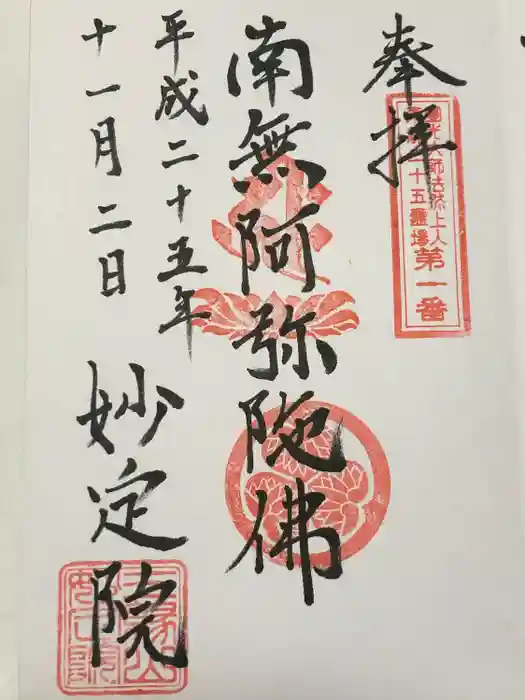 奉拝
圓光大師法然上人
二十五霊場
第一番
南無阿弥陀佛
平成二十五年
十一月二日
妙定院